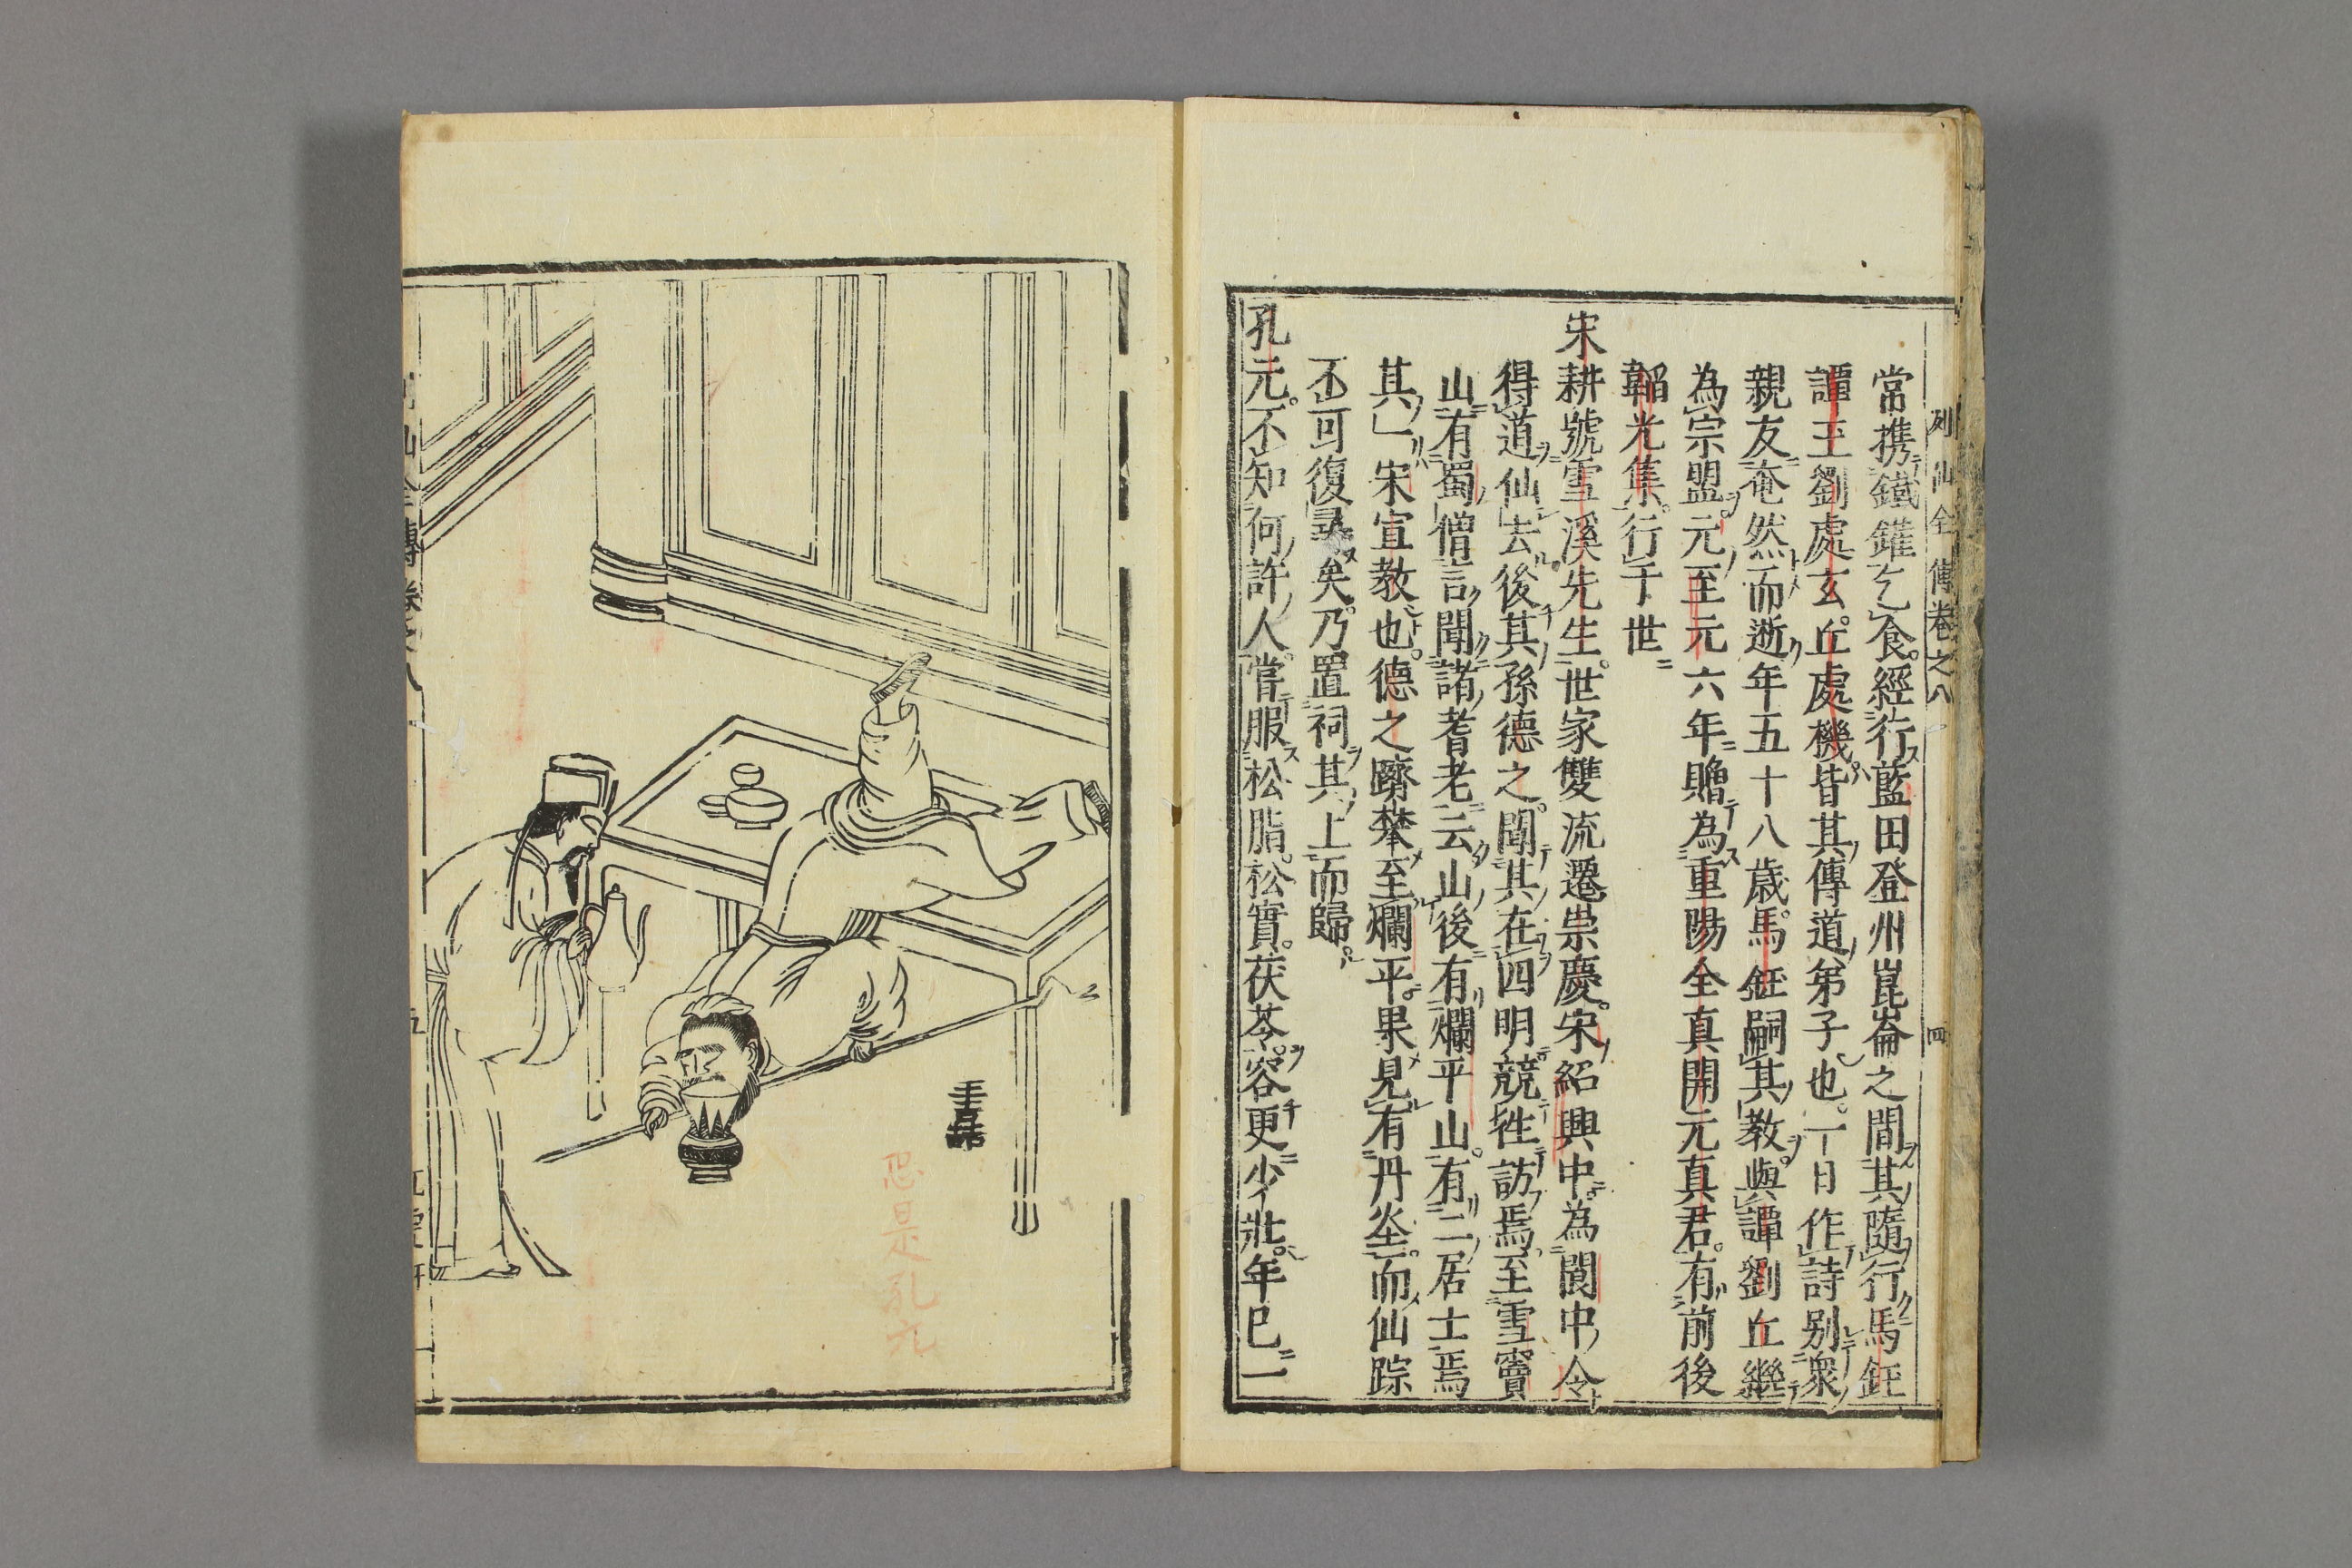 列仙全傳卷之八
四
常携鐵鑵乞食經行藍田登州崑崙之間其隨行馬鈺
譚王劉處玄丘處機皆其傳道弟子也一日作詩别衆
親友奄然而逝年五十八歳馬鈺嗣其教與譚劉丘繼
為宗盟元至元六年贈為重陽全真開元真君有前後
韜光集行于世
宋耕號雪溪先生世家雙流遷崇慶宋紹興中為閬中令
得道仙去後其孫德之聞其在四明競往訪焉至雪竇
山有蜀僧言聞諸耆老云山後有爛平山有二居士焉
其一宋宣教也德之躋攀至爛平果見有丹灶而仙踪
不可復尋矣乃置祠其上而歸
孔元不知何許人嘗服松脂松實茯苓容更少壯年已一
仙全傳卷之八
五
恐是孔元